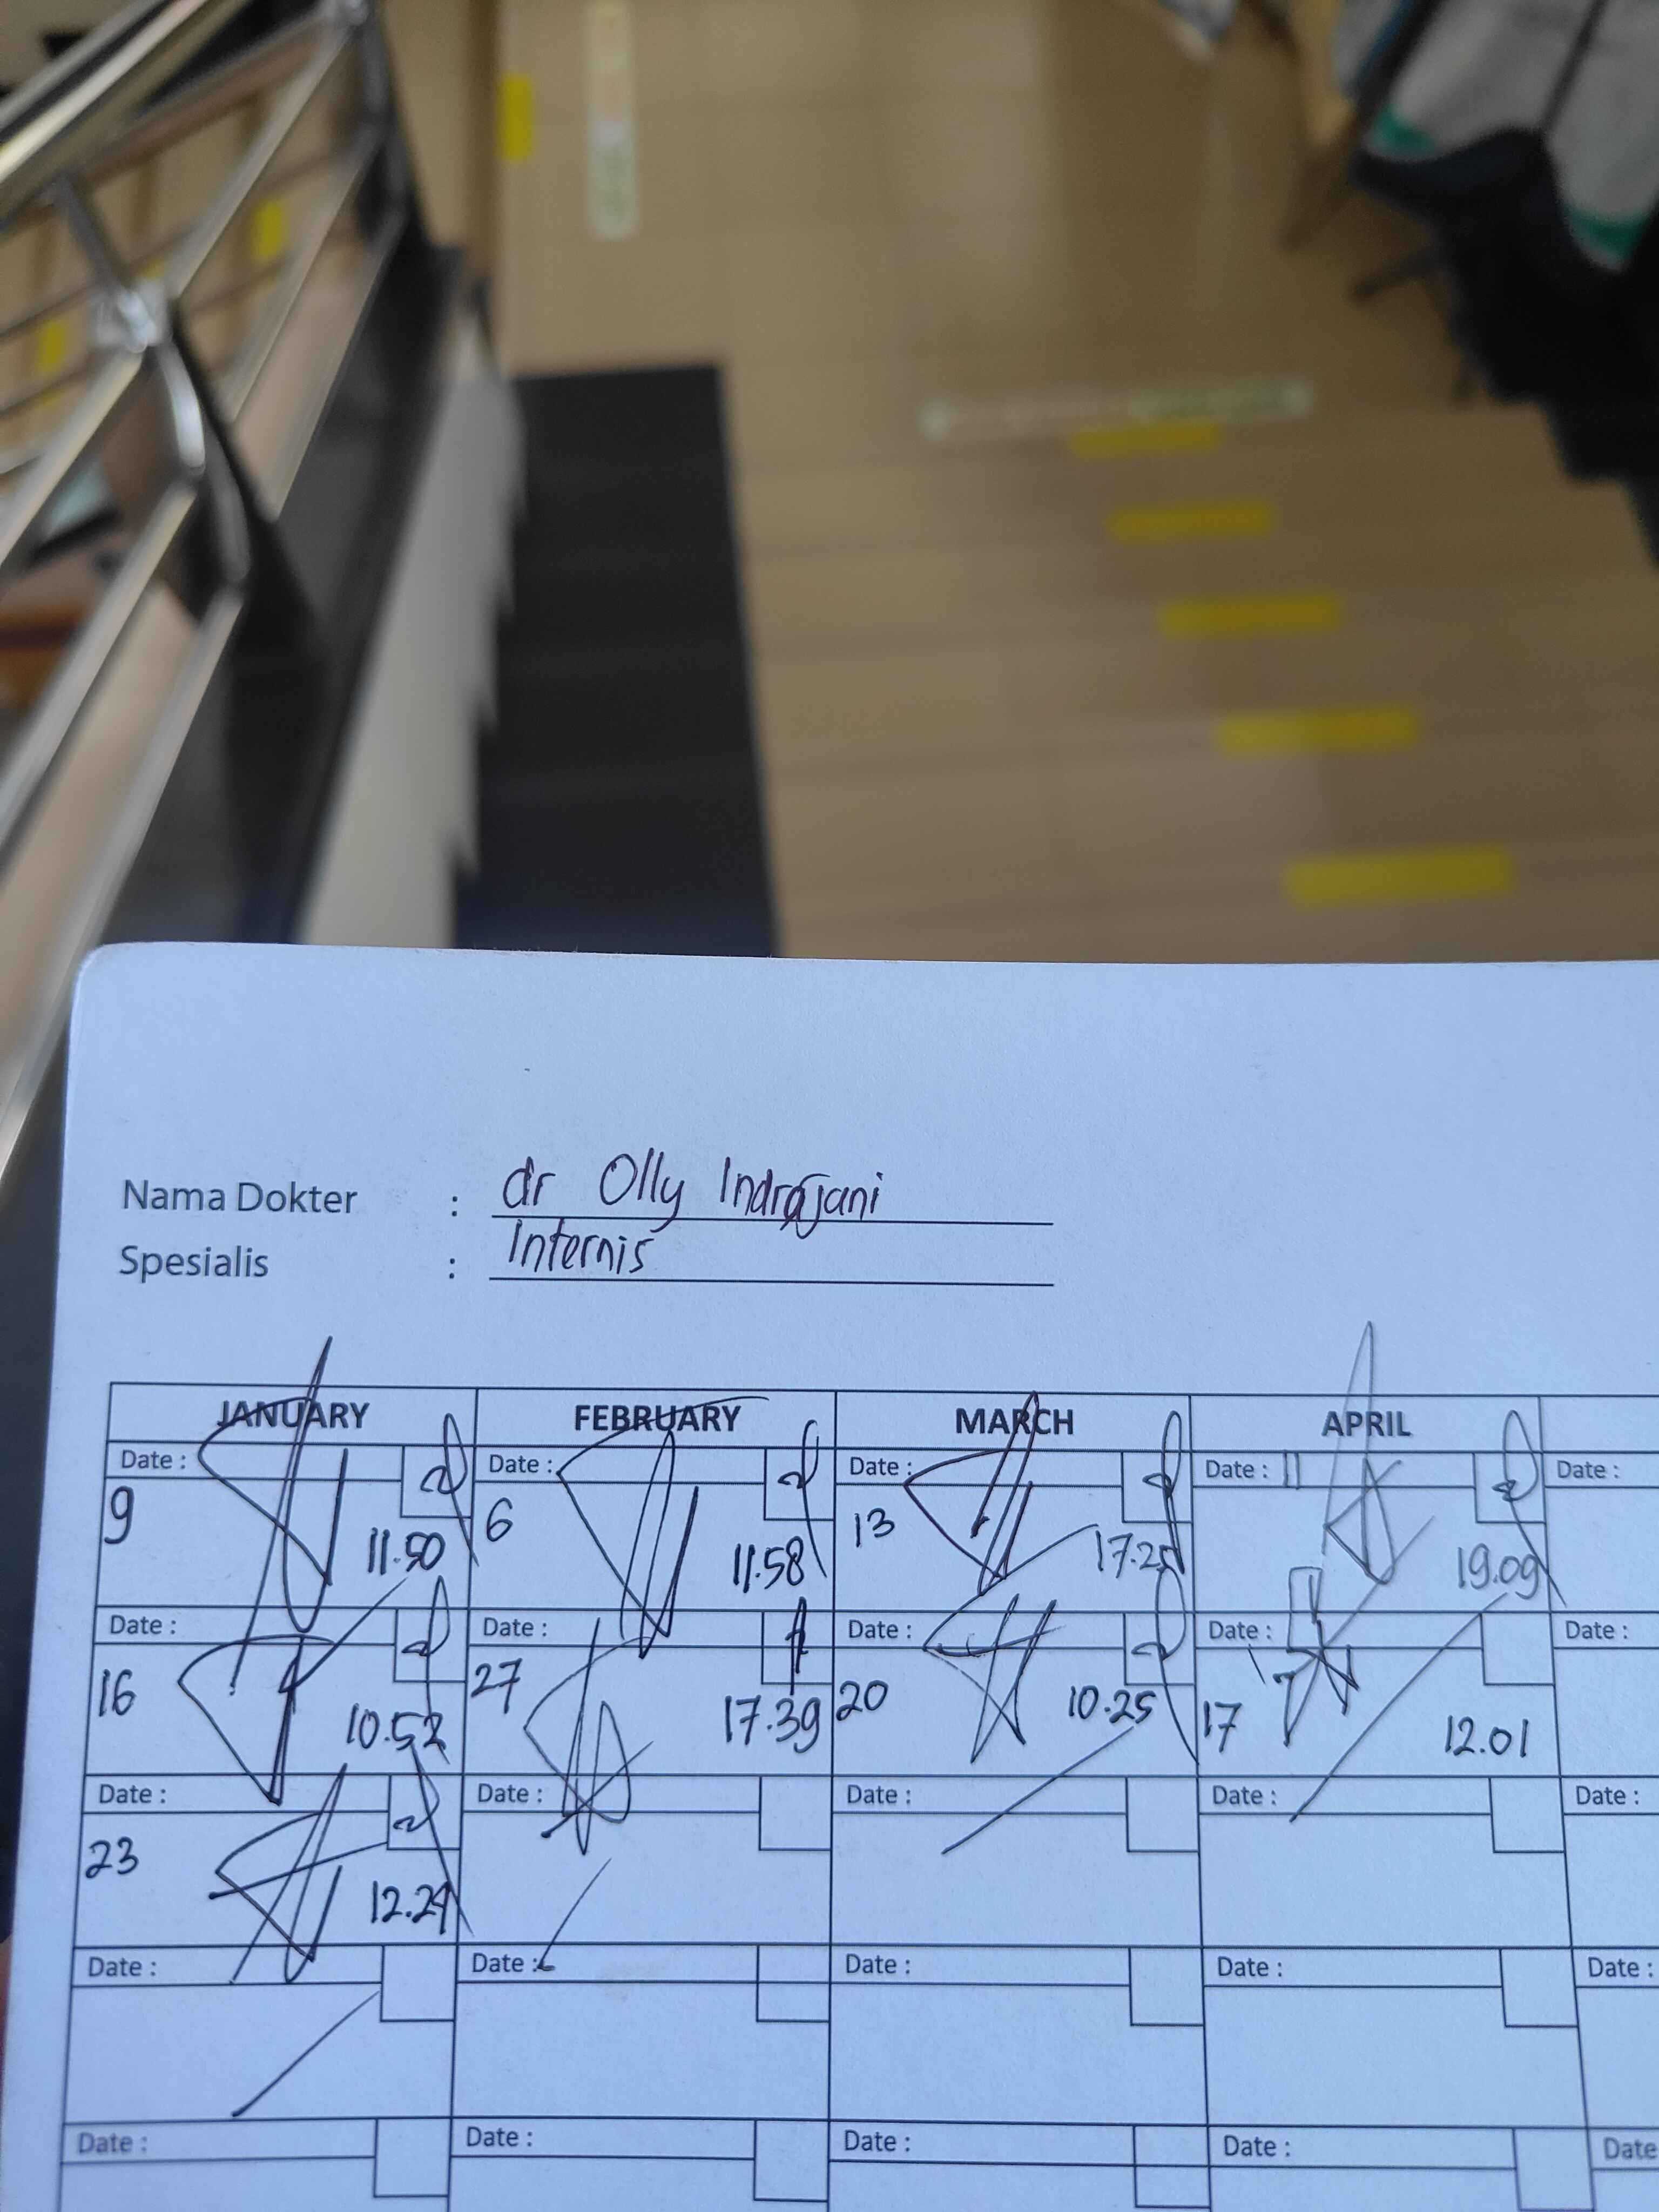 Nama Dokter : dr Olly Indrajani
Spesialis : Internis
JANUARY FEBRUARY MARCH APRIL
Date : Date : Date : Date : 11 Date :
9 6 13
11.50 11.58 17.25 19.09
Date : Date : Date : Date : Date :
16 27 20 17
10.52 17.39 10.25 12.01
Date : Date : Date : Date : Date :
23
12.29
Date : Date : Date : Date : Date :
Date : Date : Date : Date : Date